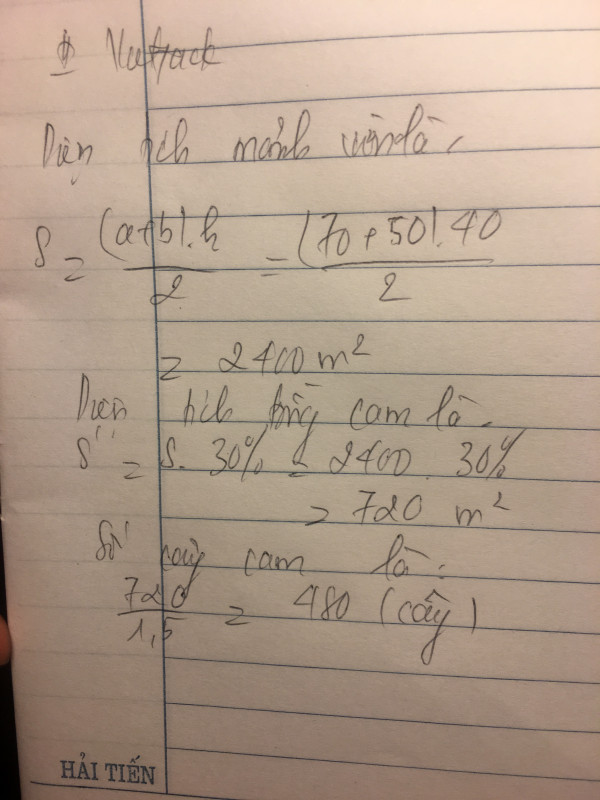 Diện tích mảnh vườn là,
S = (a+b).h / 2 = (70+50).40 / 2
= 2400 m²
Diện tích trồng cam là.
S'' = S. 30% = 2400. 30%
= 720 m²
Số cây cam là:
720 / 1,5 = 480 (cây)
HẢI TIẾN